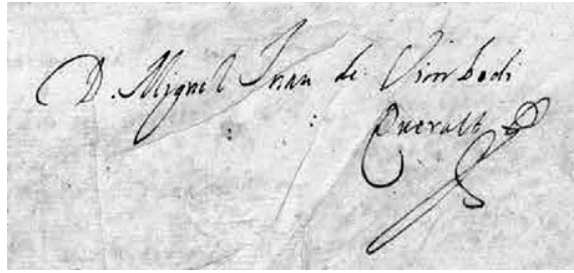 D. Miguel Juan de Vimbodi
Queralt